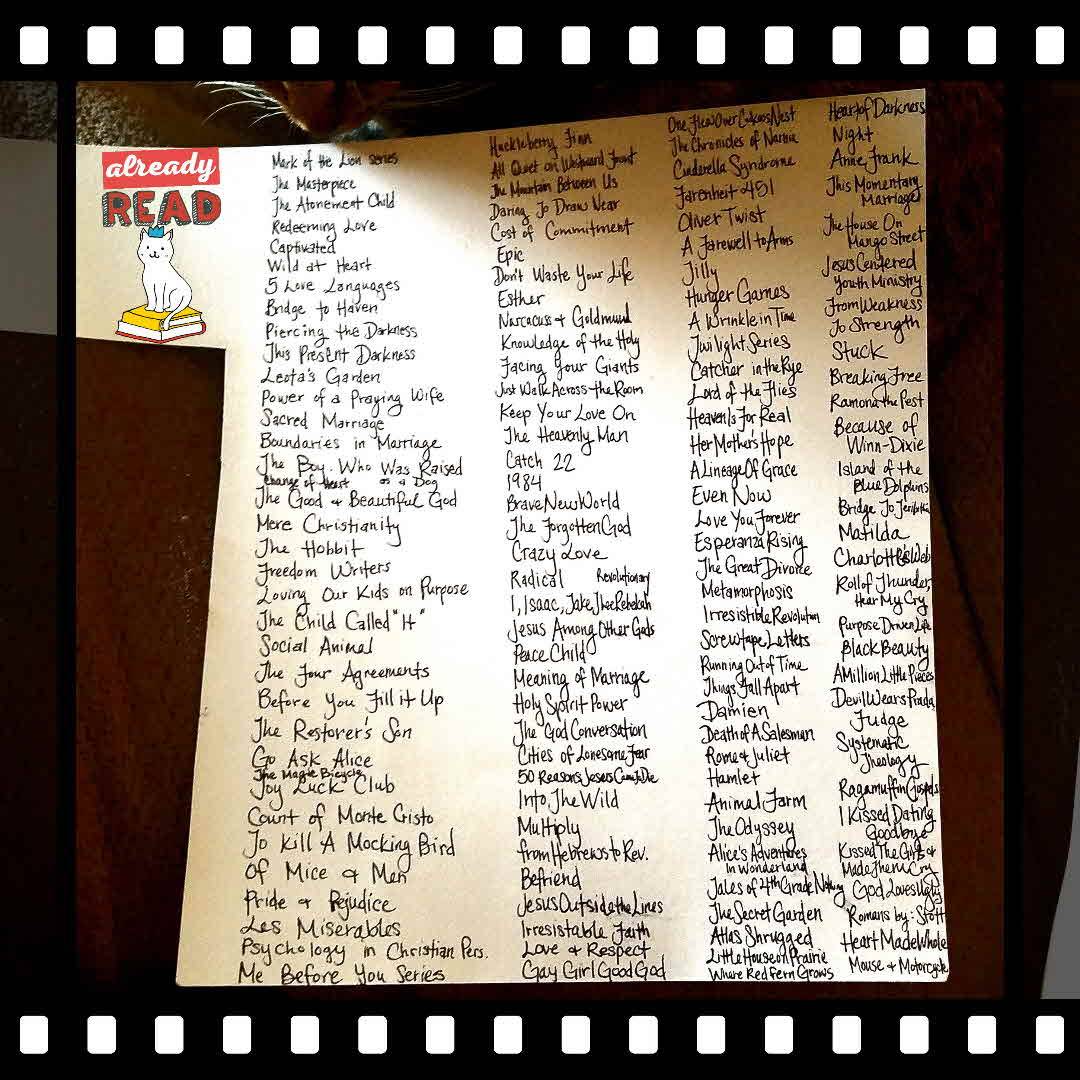 already
READ
Mark of the Lion series
The Masterpiece
The Atonement Child
Redeeming Love
Captivated
Wild at Heart
5 Love Languages
Bridge to Haven
Piercing the Darkness
This Present Darkness
Leota's Garden
Power of a Praying Wife
Sacred Marriage
Boundaries in Marriage
The Boy Who Was Raised
as a Dog
Change of Heart
The Good & Beautiful God
Mere Christianity
The Hobbit
Freedom Writers
Loving Our Kids on Purpose
The Child Called "It"
Social Animal
The Four Agreements
Before You Fill it Up
The Restorer's Son
Go Ask Alice
The Magic Bicycle
Joy Luck Club
Count of Monte Cristo
To Kill A Mocking Bird
Of Mice & Men
Pride & Prejudice
Les Miserables
Psychology in Christian Pers.
Me Before You Series
Huckleberry Finn
All Quiet on Westward Front
The Mountain Between Us
Daring To Draw Near
Cost of Commitment
Epic
Don't Waste Your Life
Esther
Narcacus & Goldmund
Knowledge of the Holy
Facing Your Giants
Just Walk Across the Room
Keep Your Love On
The Heavenly Man
Catch 22
1984
Brave New World
The Forgotten God
Crazy Love
Radical Revolutionary
I, Isaac, Take Thee Rebekah
Jesus Among Other Gods
Peace Child
Meaning of Marriage
Holy Spirit Power
The God Conversation
Cities of Lonesome Fear
50 Reasons Jesus Came To Die
Into The Wild
Multiply
from Hebrews to Rev.
Befriend
Jesus Outside the Lines
Irresistable Faith
Love & Respect
Gay Girl Good God
One Flew Over Cukoos Nest
The Chronicles of Narnia
Cinderella Syndrome
Farenheit 451
Oliver Twist
A Farewell to Arms
Jilly
Hunger Games
A Wrinkle in Time
Twilight Series
Catcher in the Rye
Lord of the Flies
Heaven Is For Real
Her Mother's Hope
A Lineage Of Grace
Even Now
Love You Forever
Esperanza Rising
The Great Divorce
Metamorphosis
Irresistible Revolution
Screwtape Letters
Running Out of Time
Things Fall Apart
Damien
Death of A Salesman
Rome & Juliet
Hamlet
Animal Farm
The Odyssey
Alice's Adventures
in Wonderland
Tales of 4th Grade Nothing
The Secret Garden
Atlas Shrugged
Little House on Prairie
Where Red Fern Grows
Heart of Darkness
Night
Anne Frank
This Momentary
Marriage
The House On
Mango Street
Jesus Centered
Youth Ministry
From Weakness
To Strength
Stuck
Breaking Free
Ramona the Pest
Because of
Winn-Dixie
Island of the
Blue Dolphins
Bridge To Teribithia
Matilda
Charlotte's Web
Roll of Thunder,
Hear My Cry
Purpose Driven Life
Black Beauty
A Million Little Pieces
Devil Wears Prada
Judge
Systematic
Theology
Ragamuffin Gospels
I Kissed Dating
Goodbye
Kissed The Girls &
Made Them Cry
God Loves Ugly
Romans by: Stott
Heart Made Whole
Mouse & Motorcycle